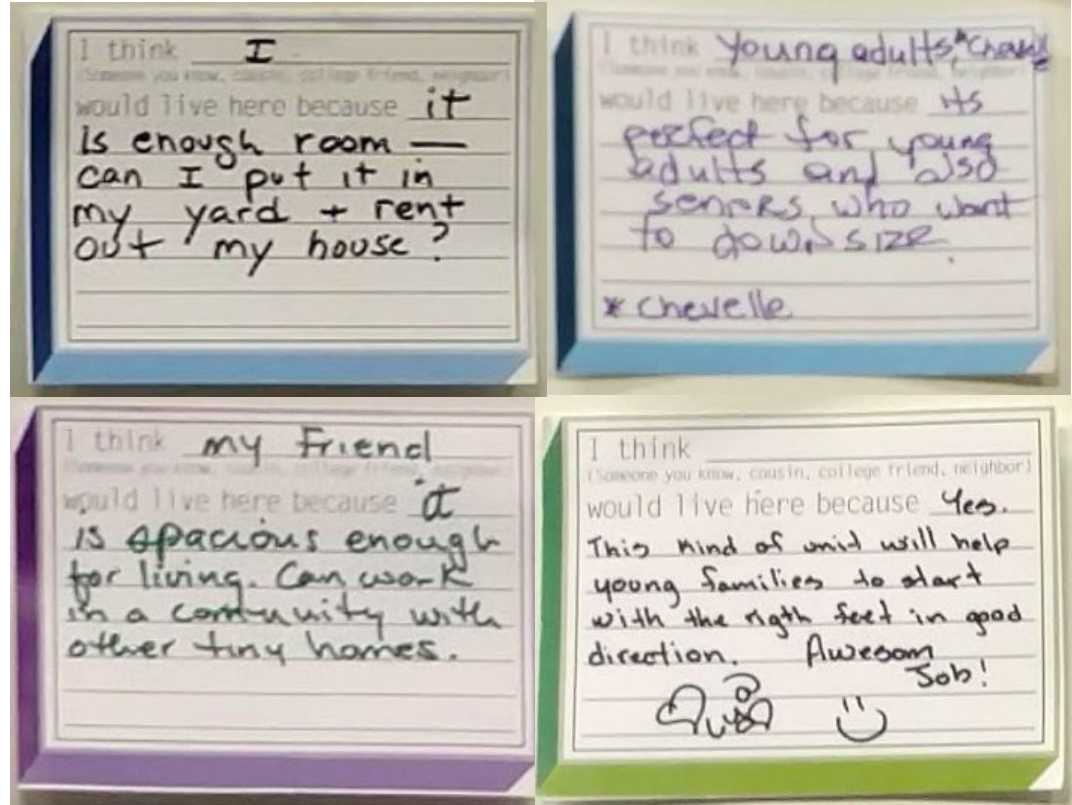 I think I
(Someone you know, cousin, college friend, neighbor)
would live here because it
is enough room —
can I put it in
my yard + rent
out my house?
I think Young adults,
(Someone you know, cousin, college friend, neighbor)
would live here because its
perfect for young
adults and also
seniors, who want
to downsize.
* Chevelle
I think my Friend
(Someone you know, cousin, college friend, neighbor)
would live here because it
is spacious enough
for living. Can work
in a comunity with
other tiny homes.
I think
(Someone you know, cousin, college friend, neighbor)
would live here because Yes.
This kind of unit will help
young families to start
with the rigth feet in good
direction. Awesom
Job!